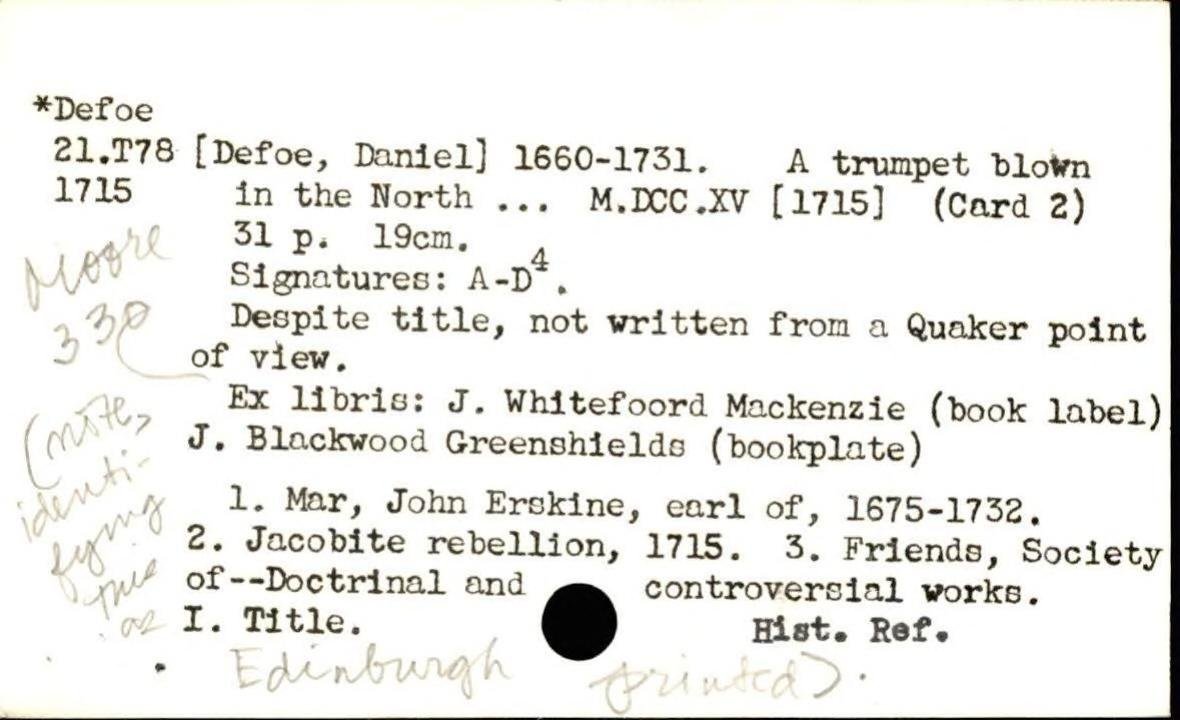 *Defoe
21.T78 [Defoe, Daniel] 1660-1731. A trumpet blown
1715 in the North ... M.DCC.XV [1715] (Card 2)
31 p. 19cm.
Signatures: A-D⁴.
Despite title, not written from a Quaker point
of view.
Ex libris: J. Whitefoord Mackenzie (book label)
J. Blackwood Greenshields (bookplate)
1. Mar, John Erskine, earl of, 1675-1732.
2. Jacobite rebellion, 1715. 3. Friends, Society
of--Doctrinal and controversial works.
I. Title. Hist. Ref.
Moore
330
(note,
identi-
fying
this
as
Edinburgh printed).